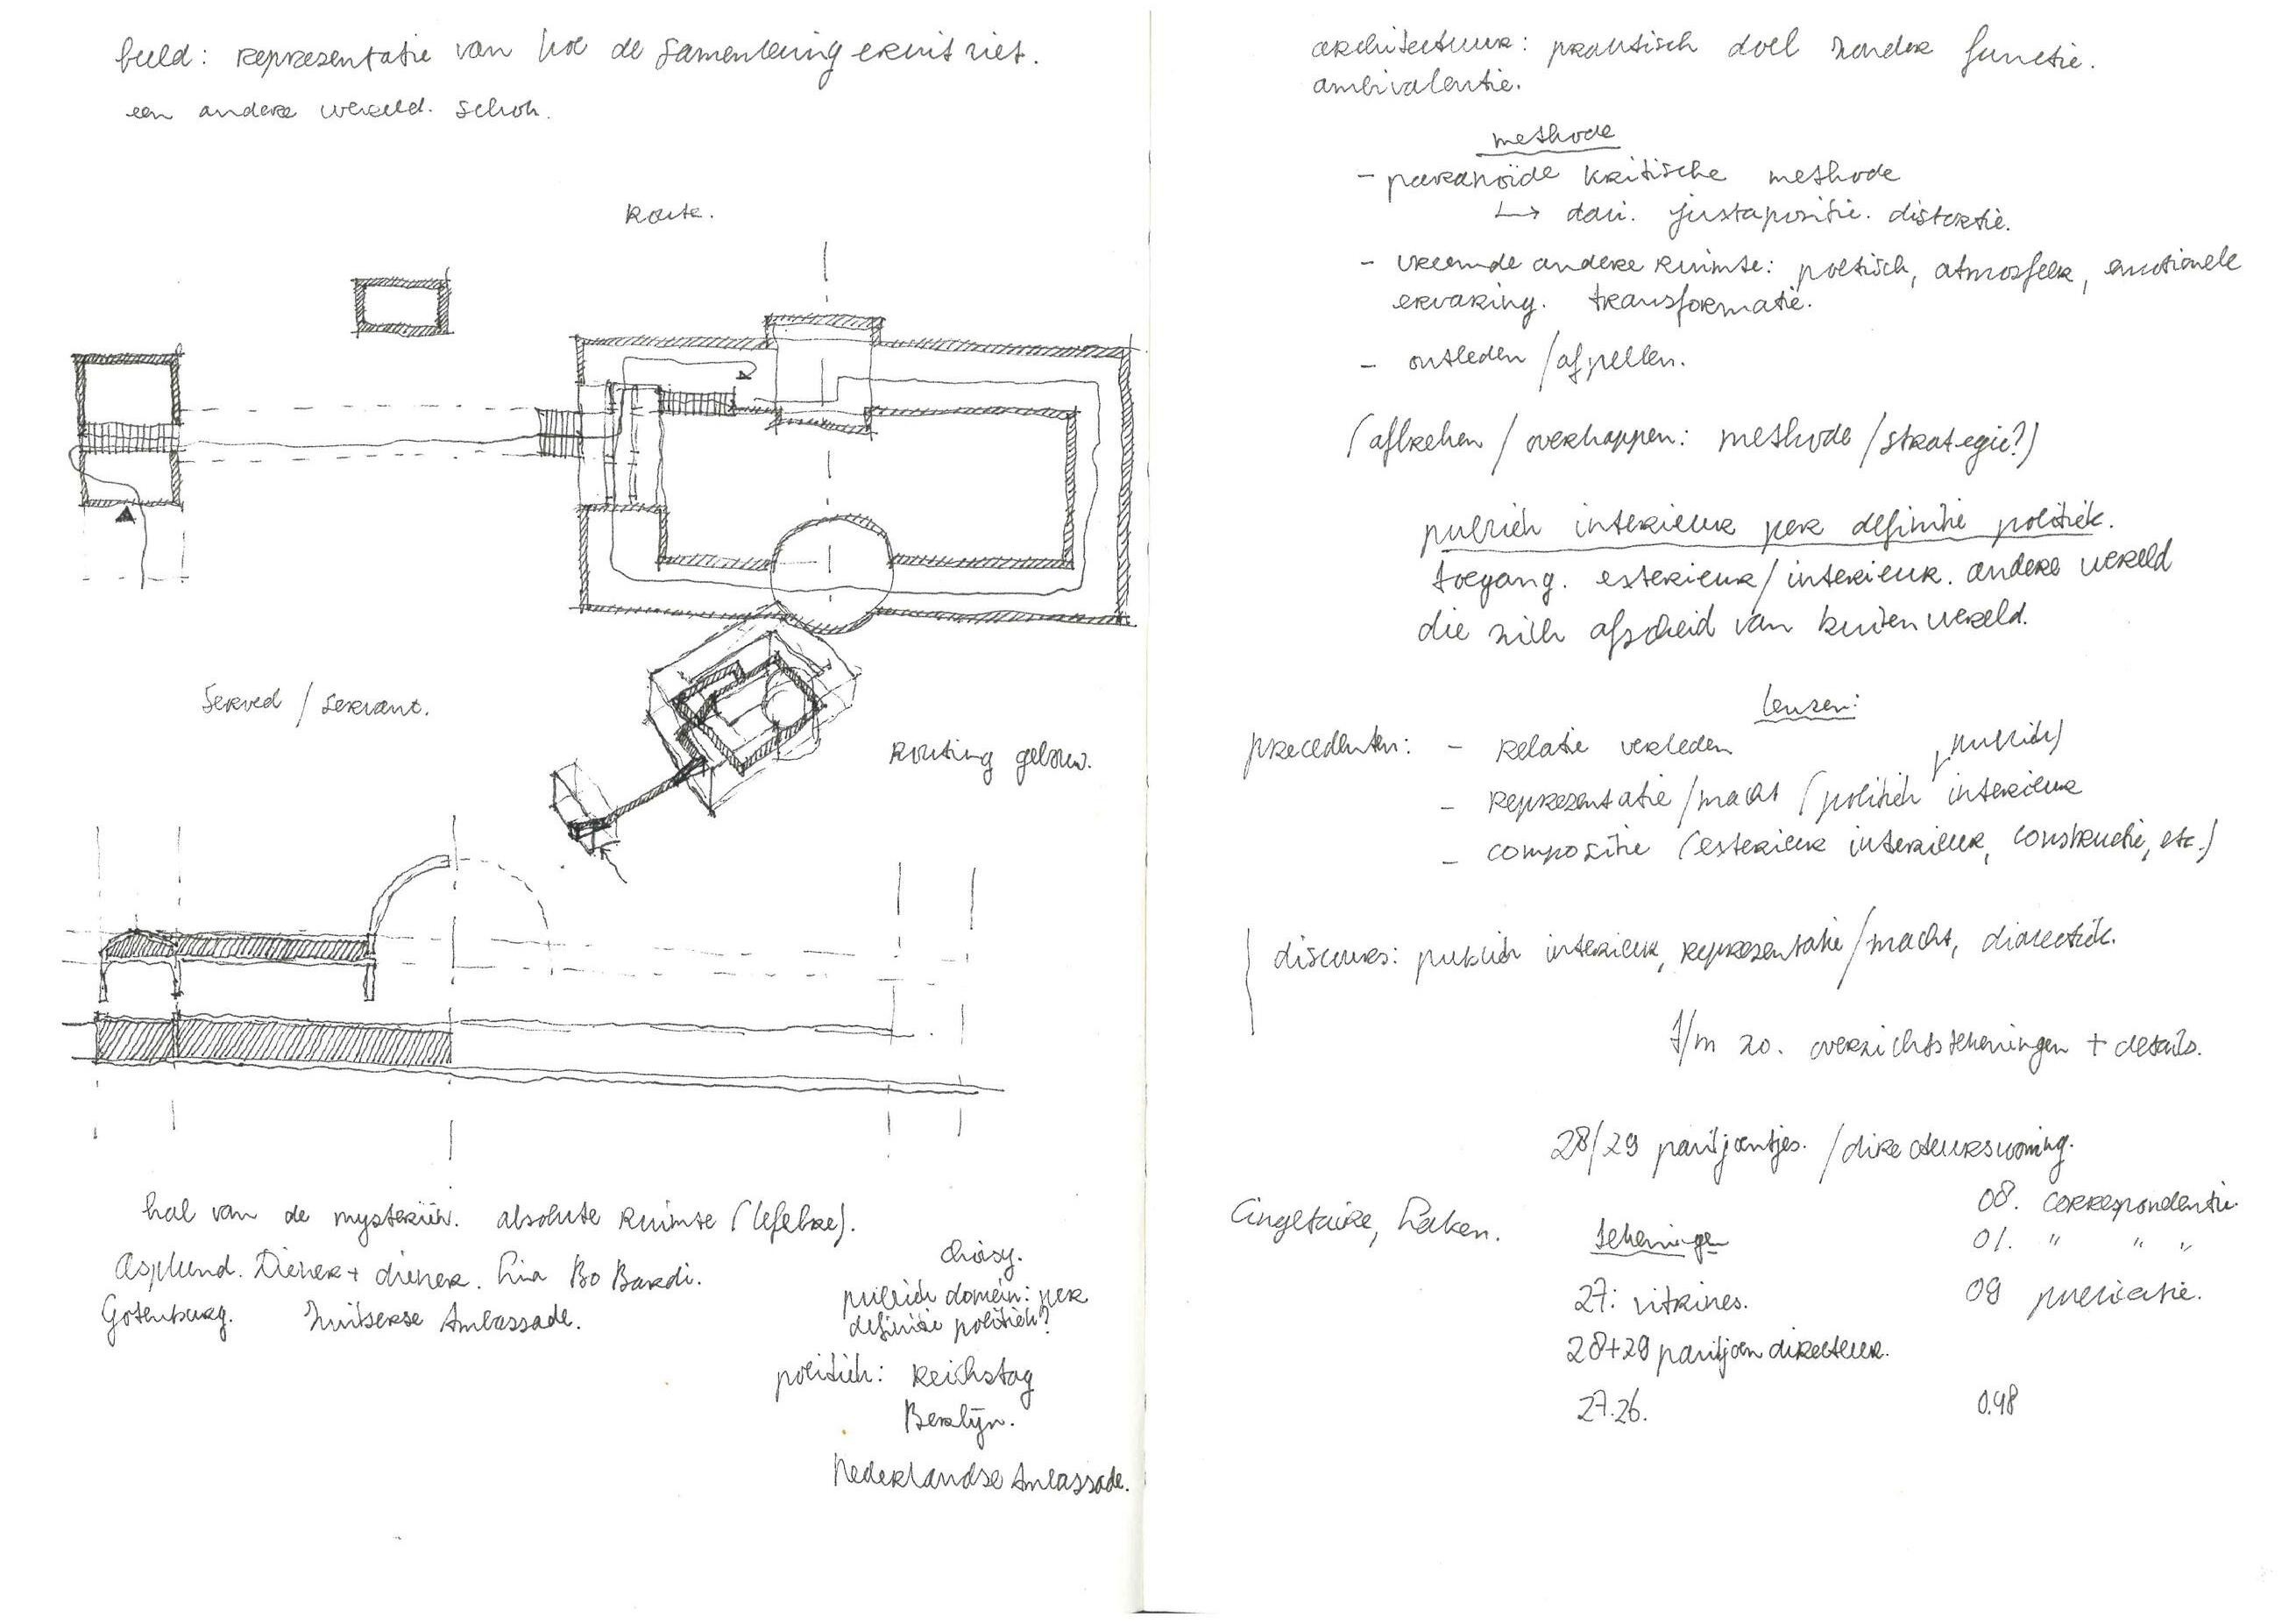 beeld: representatie van hoe de samenleving eruit ziet.
een andere wereld. schok.
Route.
Served / servant.
Routing gebouw.
hal van de mysteriën. absolute ruimte (Lefebre).
Asplund. Diener + diener. Lina Bo Bardi.
Gotenburg. Zwitserse Ambassade.
Choisy.
publiek domein: per
definitie politiek?
politiek: Reichstag
Berlijn.
Nederlandse Ambassade.
architectuur: praktisch doel zonder functie.
ambivalentie.
methode
- paranoïde kritische methode
↳ dali. juxtapositie. distortie.
- vreemde andere ruimte: poëtisch, atmosfeer, emotionele
ervaring. transformatie.
- ontleden / afpellen.
(afbreken / overkappen: methode / strategie?)
publiek interieur per definitie politiek.
toegang. exterieur / interieur. andere wereld
die zich afscheid van buitenwereld.
lenzen:
precedenten: - relatie verleden
- representatie / macht (politiek interieur
publiek)
- compositie (exterieur interieur, constructie, etc.)
discours: publiek interieur, representatie / macht, dialectiek.
t/m 20. overzichtstekeningen + details.
28/29 paviljoentjes. / directeurswoning.
Laken.
08. correspondentie.
tekeningen
01. " " "
27: vitrines.
09 publicatie.
28+29 paviljoen directeur.
27.26.
0.48